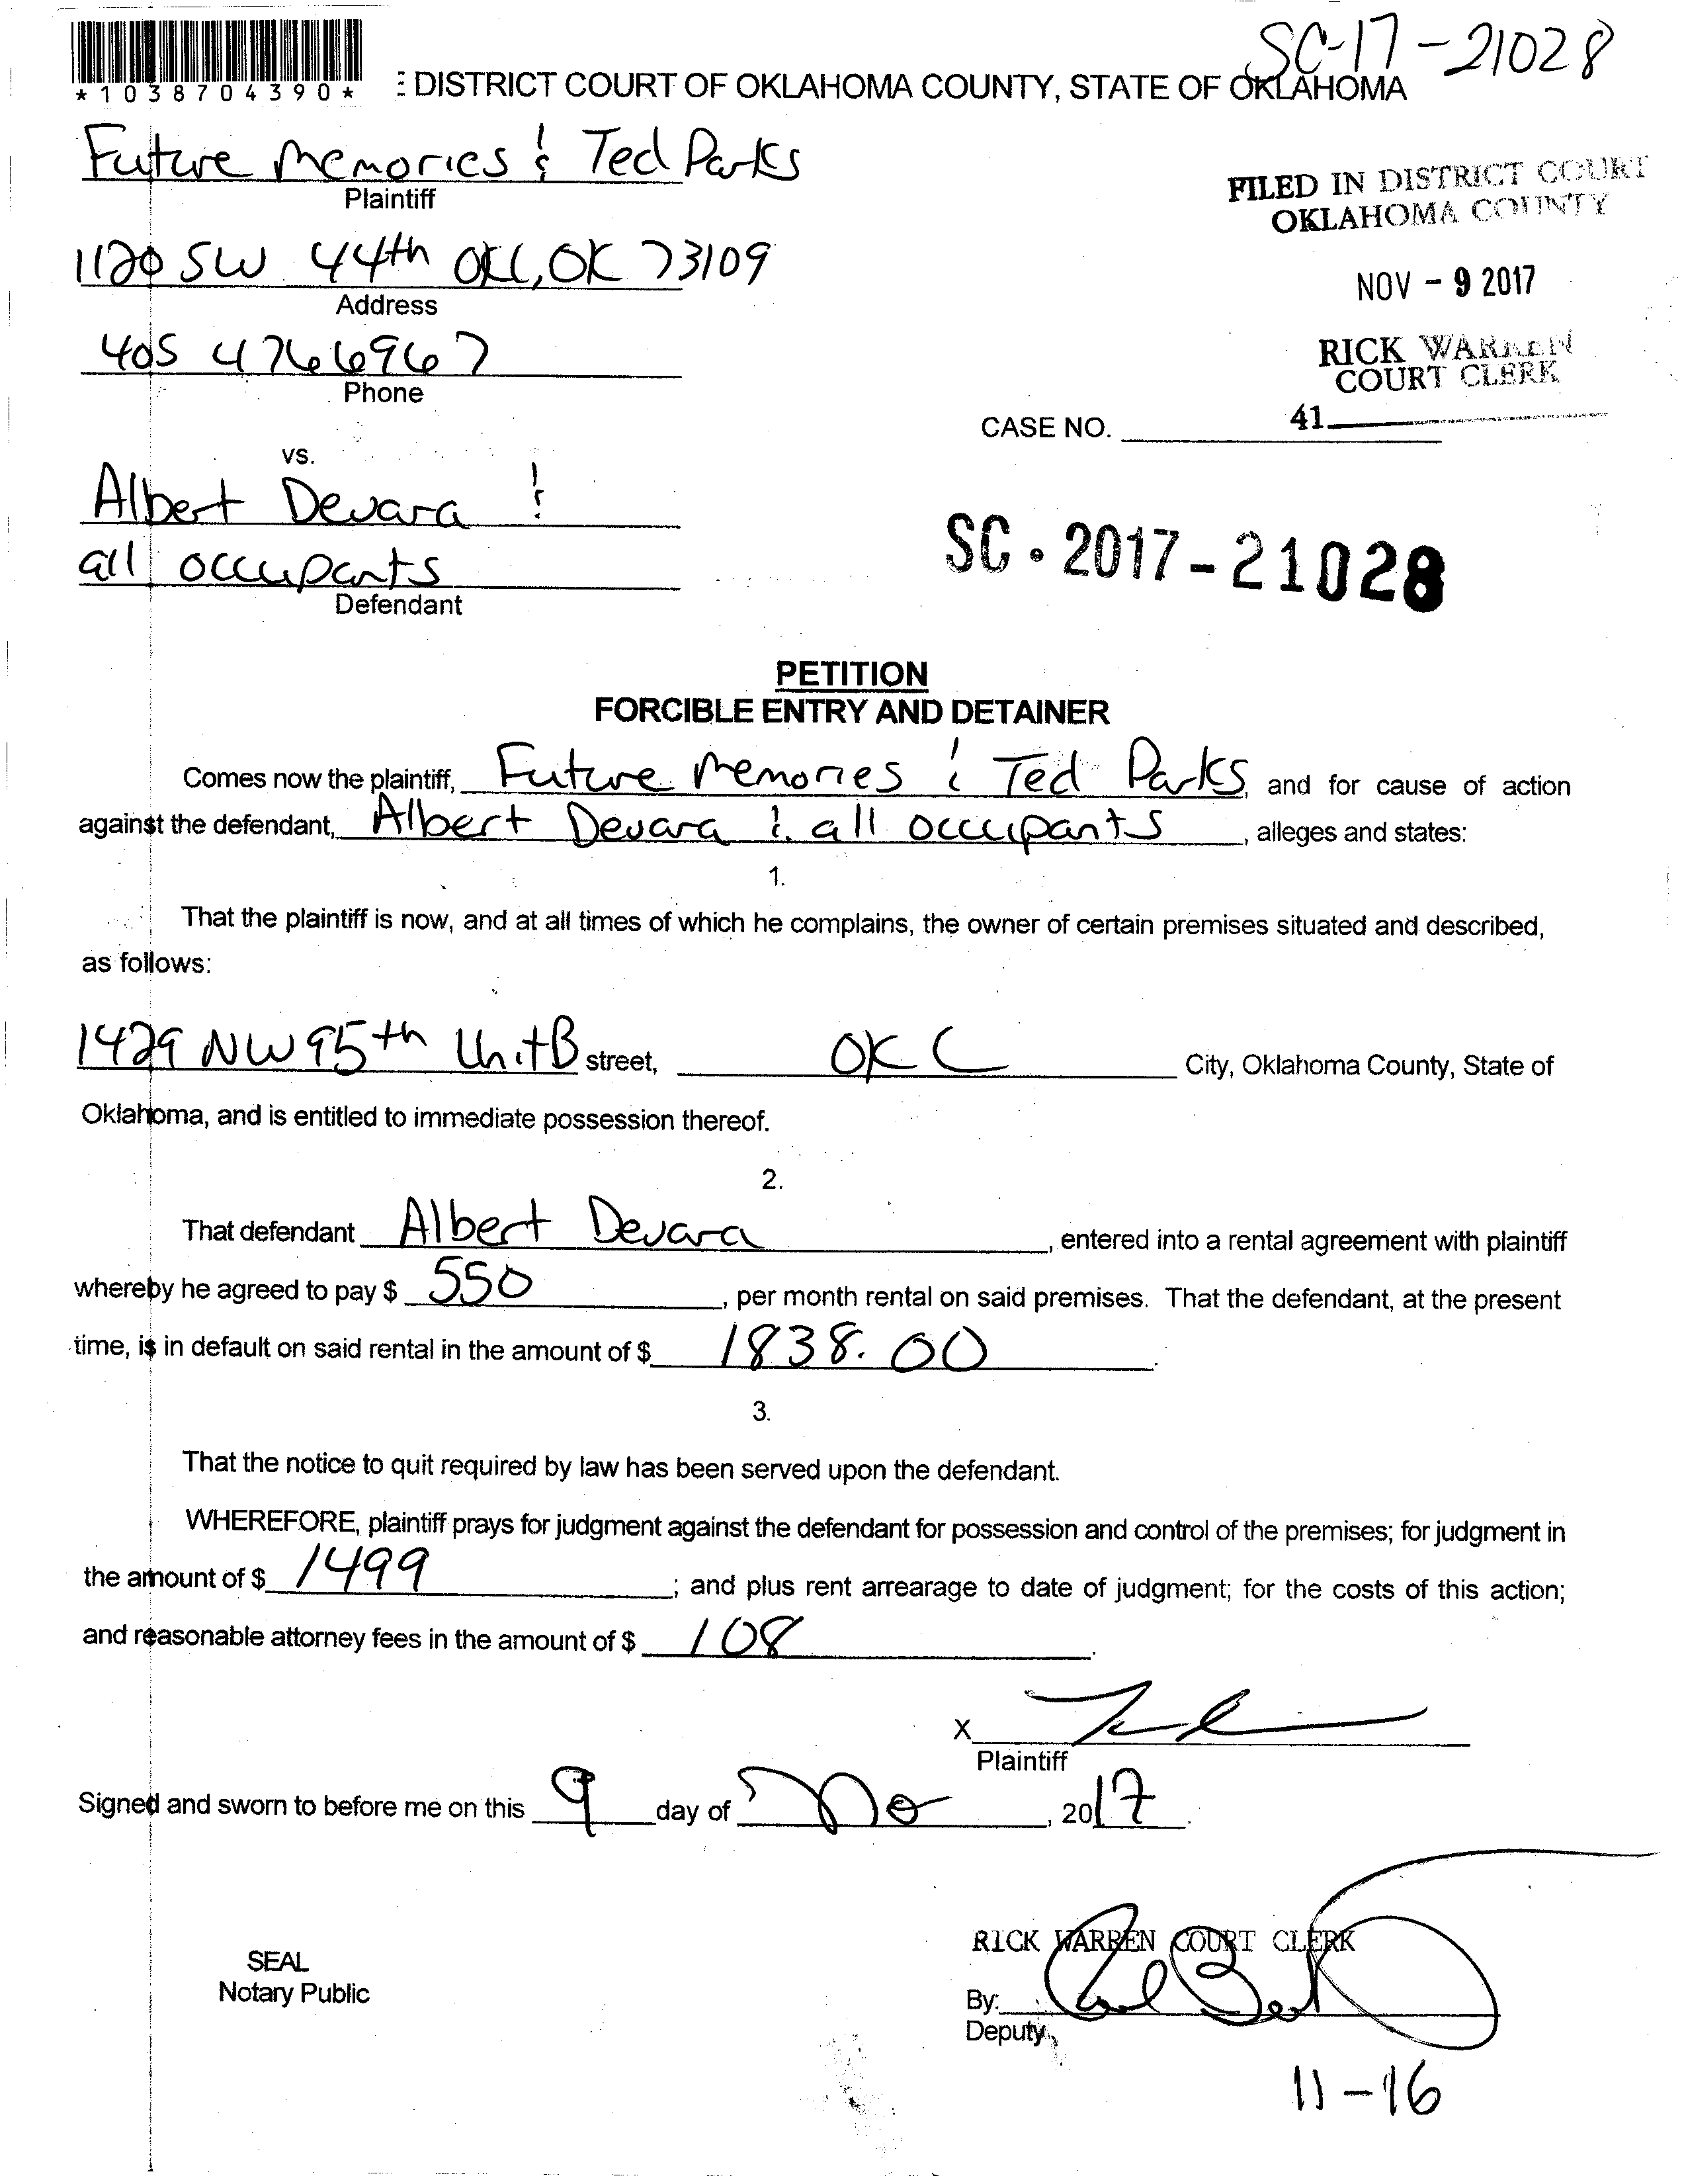 SC-17-21028
*1038704390*
E DISTRICT COURT OF OKLAHOMA COUNTY, STATE OF OKLAHOMA
Future Memories & Ted Parks
Plaintiff
FILED IN DISTRICT COURT
OKLAHOMA COUNTY
1120 SW 44th OKC, OK 73109
Address
NOV - 9 2017
405 4766967
Phone
RICK WARREN
COURT CLERK
41
CASE NO.
vs.
Albert Devara &
all occupants
Defendant
SC • 2017 - 21028
PETITION
FORCIBLE ENTRY AND DETAINER
Comes now the plaintiff, Future Memories & Ted Parks, and for cause of action
against the defendant, Albert Devara & all occupants, alleges and states:
1.
That the plaintiff is now, and at all times of which he complains, the owner of certain premises situated and described,
as follows:
1429 NW 95th Unit B street, OKC City, Oklahoma County, State of
Oklahoma, and is entitled to immediate possession thereof.
2.
That defendant Albert Devara, entered into a rental agreement with plaintiff
whereby he agreed to pay $ 550, per month rental on said premises. That the defendant, at the present
time, is in default on said rental in the amount of $ 1838.00.
3.
That the notice to quit required by law has been served upon the defendant.
WHEREFORE, plaintiff prays for judgment against the defendant for possession and control of the premises; for judgment in
the amount of $ 1499; and plus rent arrearage to date of judgment; for the costs of this action;
and reasonable attorney fees in the amount of $ 108.
X
Plaintiff
Signed and sworn to before me on this 9 day of No, 2017.
RICK WARREN COURT CLERK
SEAL
Notary Public
By:
Deputy
11-16